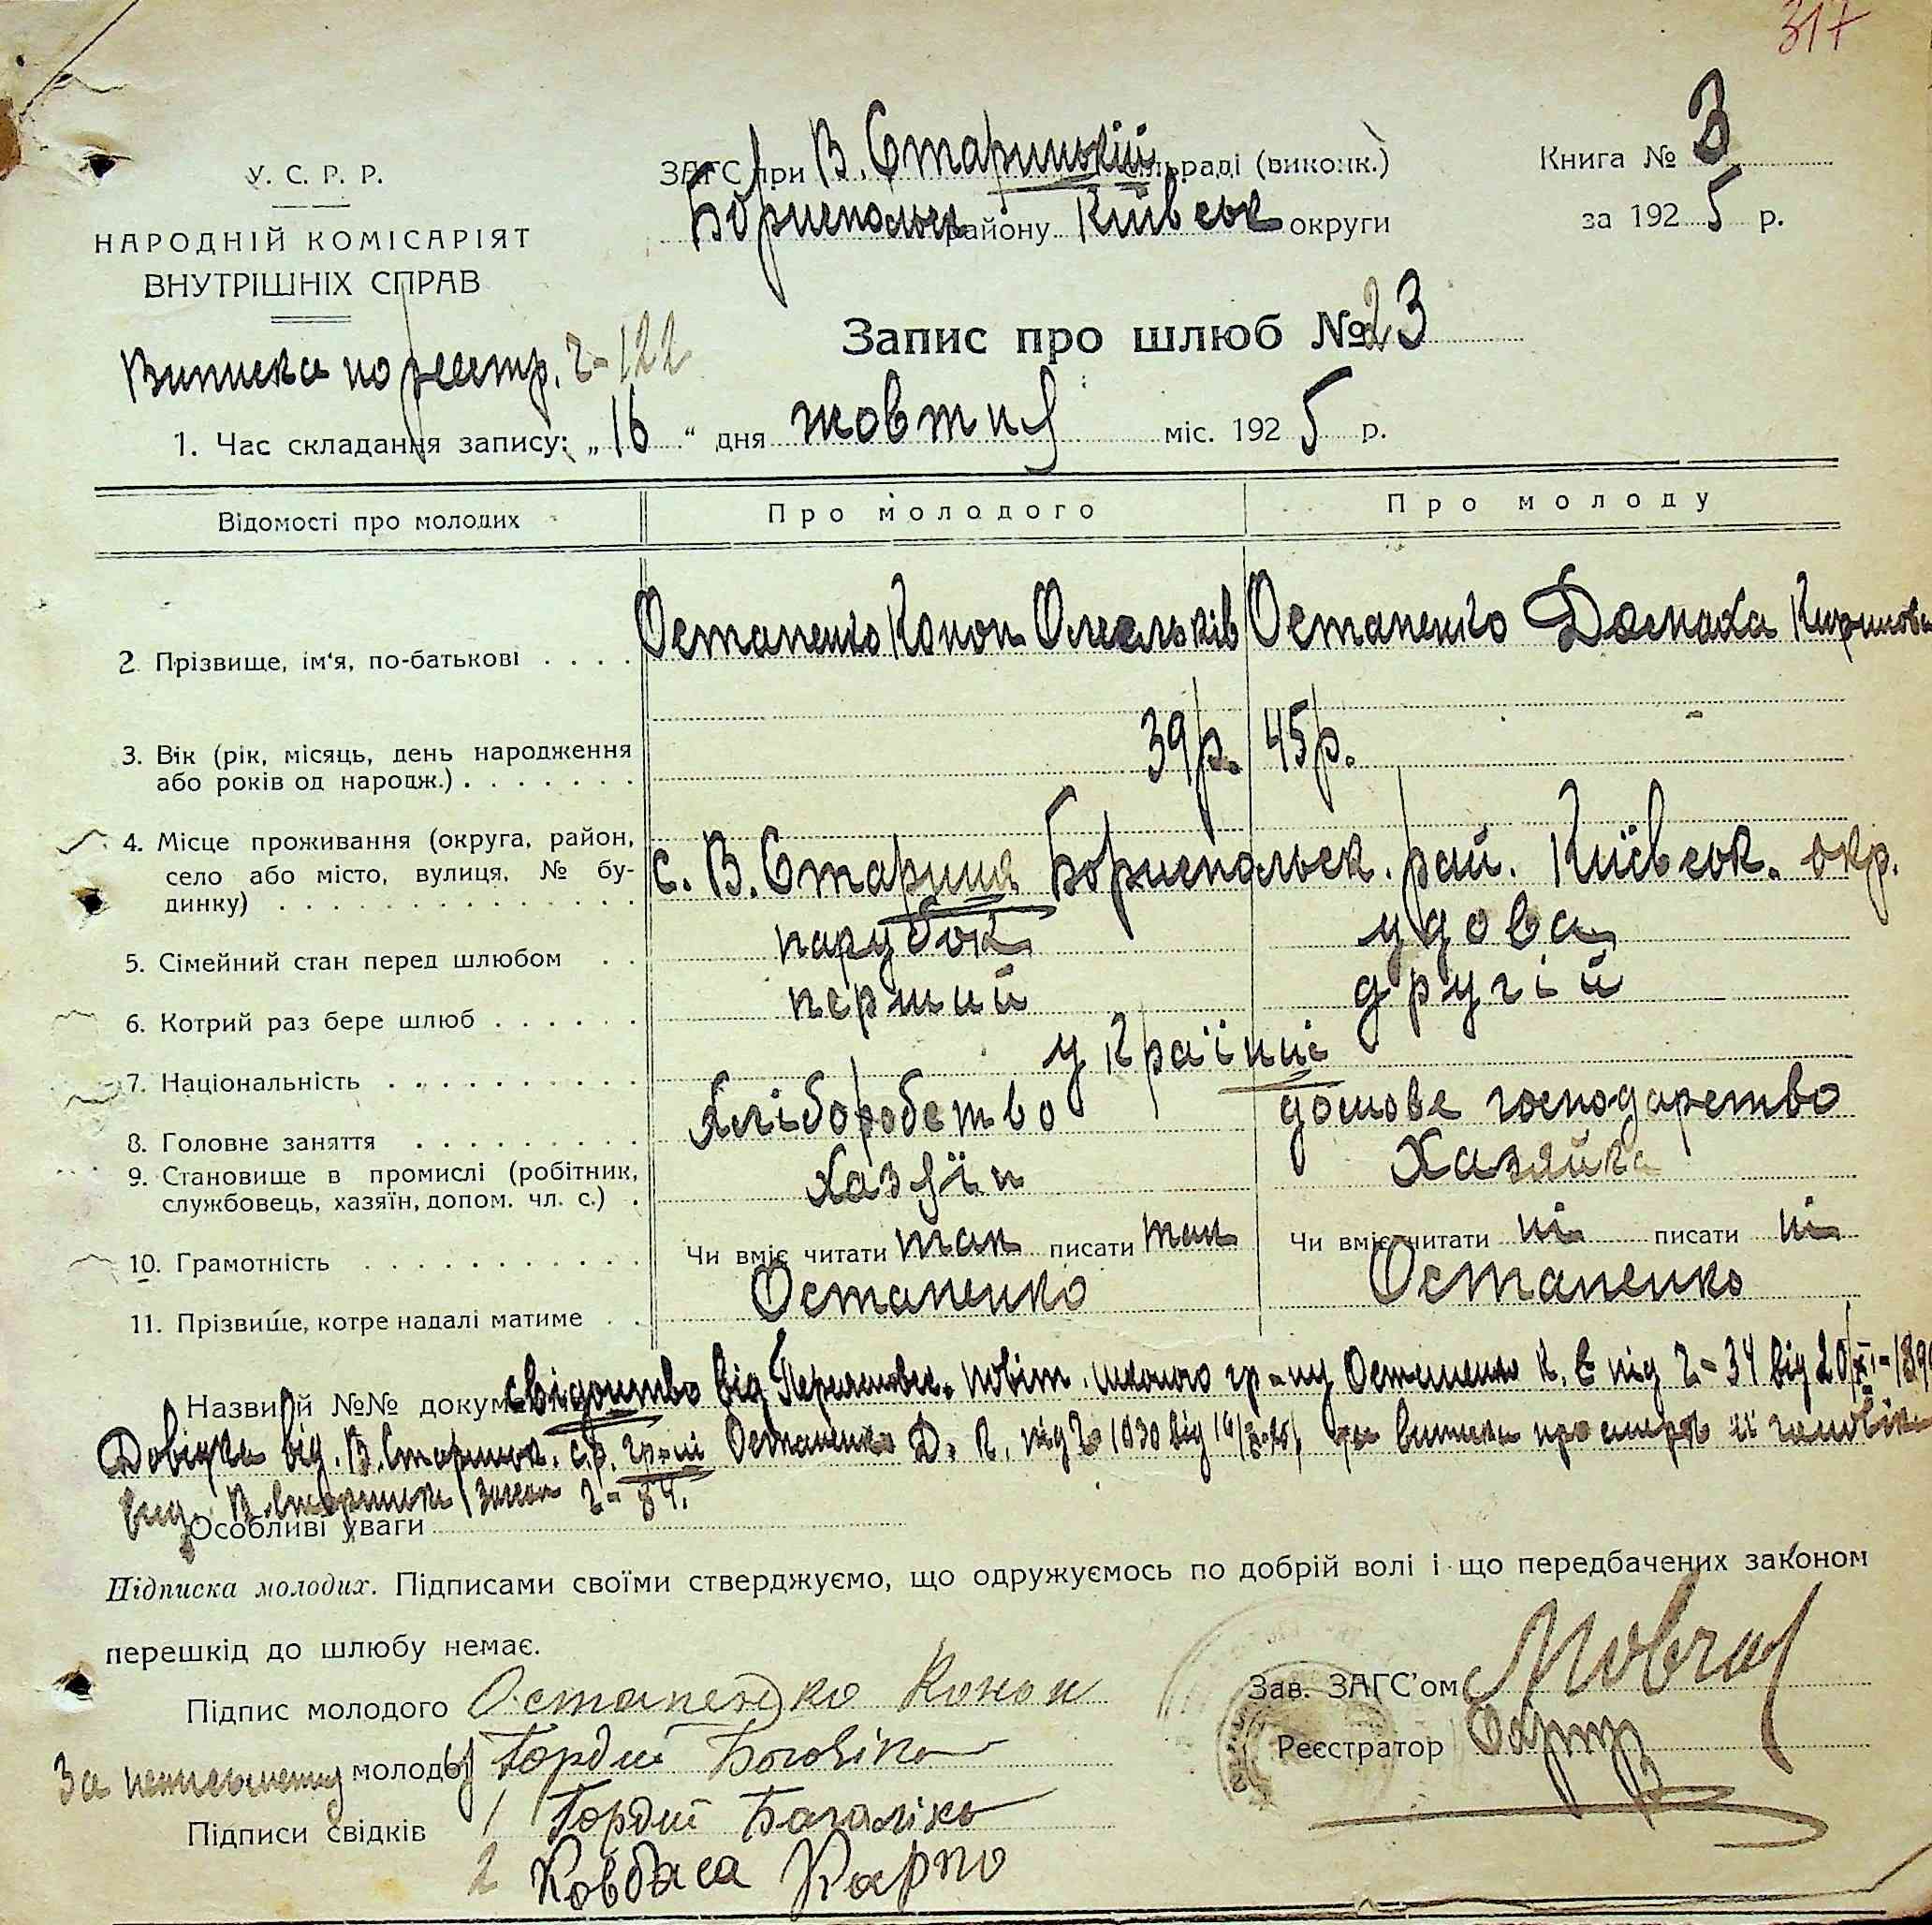 317
У. С. Р. Р.
НАРОДНІЙ КОМІСАРІЯТ
ВНУТРІШНІХ СПРАВ
ЗАГС при В. Старицькій сільраді (виконк.)
Бориспольськ району Київськ округи
Книга № 3
за 1925 р.
Запис про шлюб № 23
Виписка по реєстр. Ч-122
1. Час складання запису: „16“ дня жовтня міс. 1925 р.
Відомості про молодих
Про молодого
Про молоду
2 Прізвище, ім'я, по-батькові . . . . Остапенко Конон Омельків Остапенко Домаха Кирилова
3. Вік (рік, місяць, день народження
або років од народж.) . . . . . . . 39 р. 45 р.
4. Місце проживання (округа, район,
село або місто, вулиця, № бу-
динку) с. В. Стариця Бориспольск. рай. Київськ. окр.
5. Сімейний стан перед шлюбом . . парубок удова
6. Котрий раз бере шлюб . . . . . . перший другій
7. Національність . . . . . . . . . . українці
8. Головне заняття . . . . . . . . . хліборобство домове господарство
9. Становище в промислі (робітник,
службовець, хазяїн, допом. чл. с.) . хазяїн Хазяйка
10. Грамотність . . . . . . . . . . . . Чи вміє читати так писати так Чи вміє читати ні писати ні
11. Прізвище, котре надалі матиме . . Остапенко Остапенко
Назви й №№ докум свідоцтво від повіт. гр-ну Остапенко К. Є під Ч-34 від 20/XI-189
Довідка від. В. Старицьк. с.р. гр-ці Остапенко Д. К. під Ч 1030 від та виписка про смерть її чоловіка
вид. В. Старицьк Ч-84.
Особливі уваги
Підписка молодих. Підписами своїми стверджуємо, що одружуємось по добрій волі і що передбачених законом
перешкід до шлюбу немає.
Підпис молодого Остапенко Конон
За неписьменну молодої Гордій
Підписи свідків 1 Гордій
2 Ковбаса Карпо
Зав. ЗАГС'ом Мовчан
Реєстратор